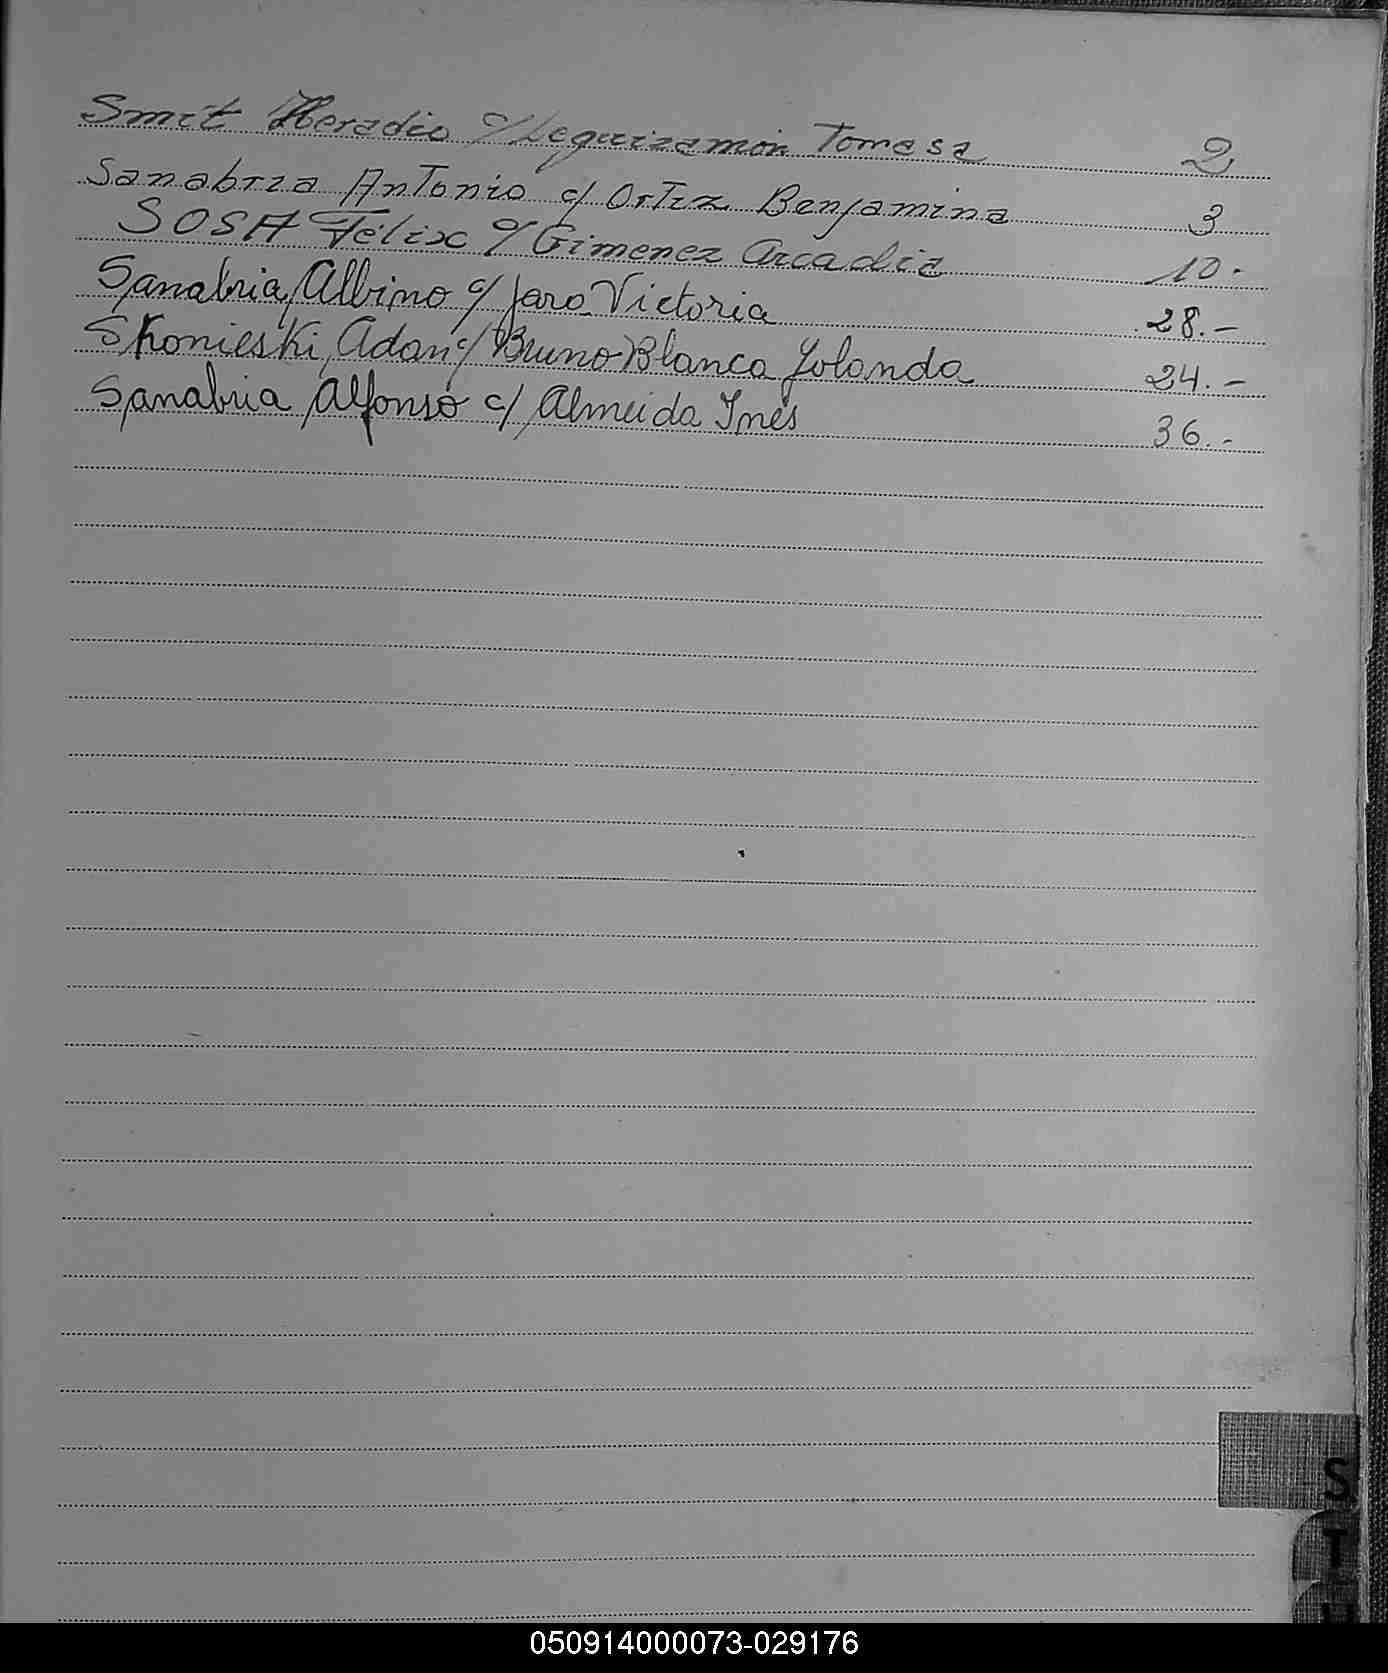 Smit Heradio c/ Leguizamón Tomasa 2
Sanabria Antonio c/ Ortiz Benjamina 3
SOSA Félix c/ Gimenez Arcadia 10.
Sanabria, Albino c/ Jara Victoria 28.-
Skonieski, Adan c/ Bruno Blanca Yolanda 24.-
Sanabria, Alfonso c/ Almeida Inés 36.-
S
T
U
050914000073-029176